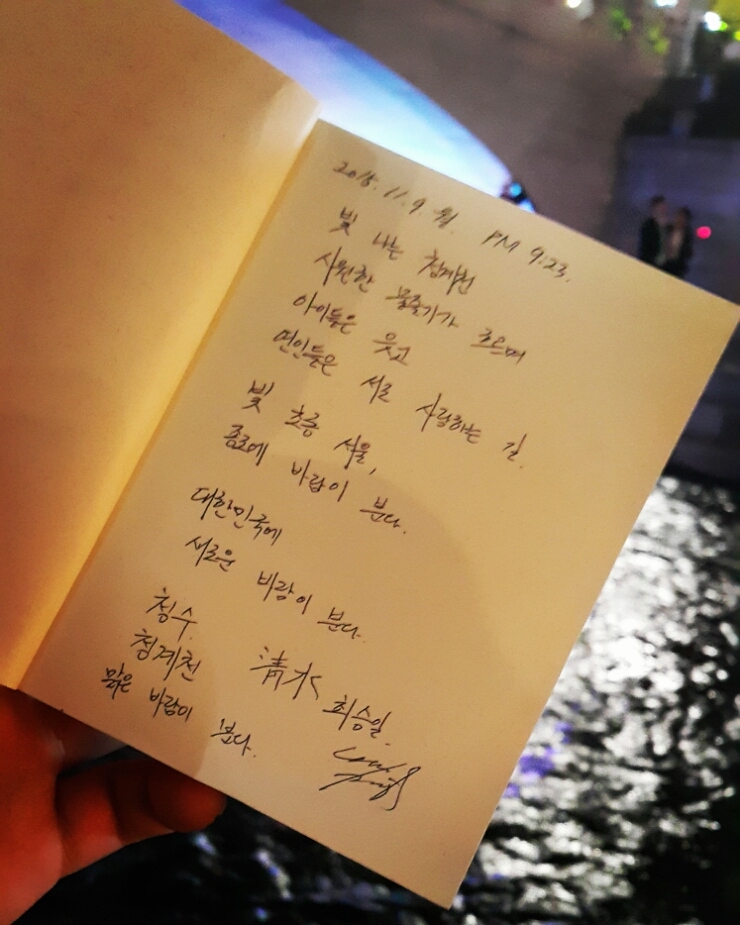 2015. 11. 9 월. PM 9:23.
빛 나는 청계천
시원한 물줄기가 흐르며
아이들은 웃고
연인들은 서로 사랑하는 길.
빛 초롱 서울,
종로에 바람이 분다.
대한민국에
새로운 바람이 분다.
청수.
청계천 清水
맑은 바람이 분다.
최승일.